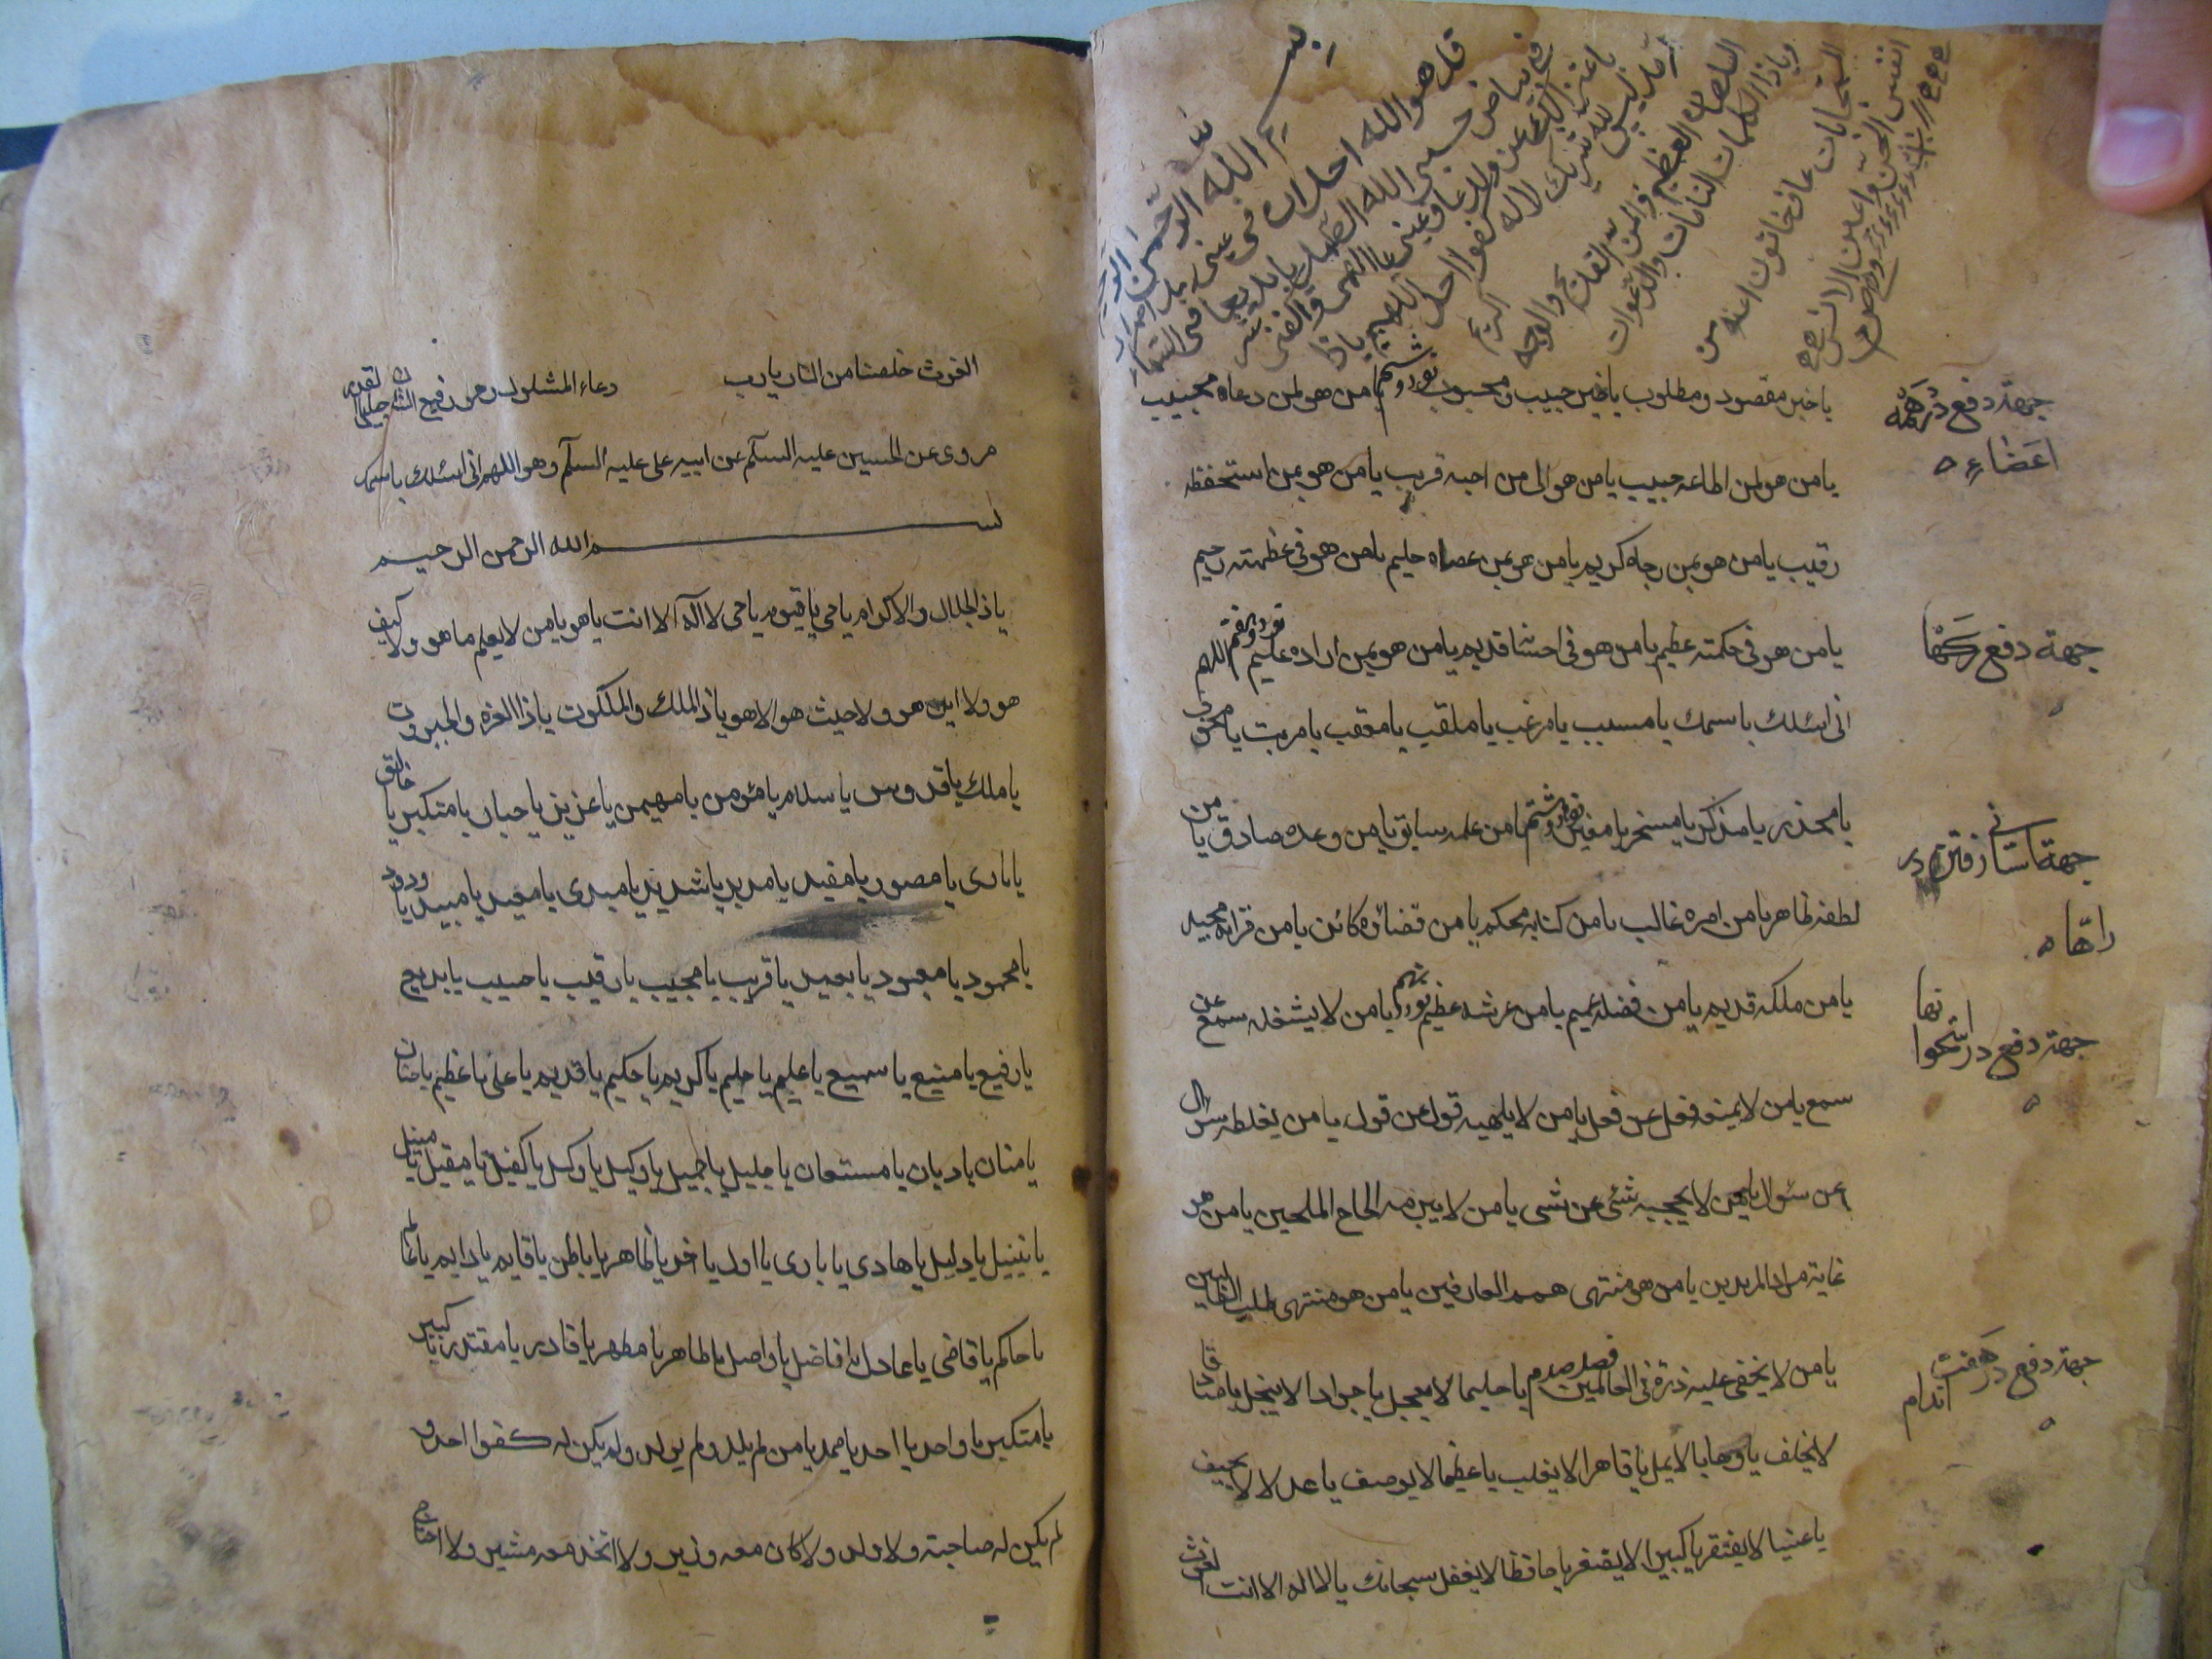 بسم الله الرحمن الرحيم
قل هو الله احد
حسبى الله الصمد
لا اله
العظيم
وياذا الكلمات التامات والدعوات
المستجابات عاف
انفس الجن واعين الانس
ياخير مقصود ومطلوب ياخير حبيب ومحبوب نود وششم يامن هو لمن دعاه مجيب
جهة دفع درد همه
اعضاء
يامن هو لمن اطاعه حبيب يامن هو الى من احبه قريب يامن هو بمن استحفظه
رقيب يامن هو بمن رجاه كريم يامن هو بمن عصاه حليم يامن هو فى عظمته رحيم
يامن هو فى حكمته عظيم يامن هو فى احسانه قديم يامن هو بمن اراده عليم نود وهفتم اللهم
جهة دفع
انى اسئلك باسمك يا مسبب يا مرغب يا مقلب يا معقب يا مرتب يا مخوف
يا محذر يا مذكر يا مسخر يا مغير نود وهشتم يامن علمه سابق يامن وعده صادق يا من
جهة
راهها
لطفه ظاهر يامن امره غالب يامن كتابه محكم يامن قضائه كائن يامن قرانه مجيد
يامن ملكه قديم يامن فضله عميم يامن عرشه عظيم نود ونهم يامن لا يشغله سمع عن
جهة دفع درد استخوا
نها
سمع يامن لا يمنعه فعل عن فعل يامن لا يلهيه قول عن قول يامن يغلطه سوال
عن سئوال يامن لا يحجبه شئ عن شى يامن لا يبرمه الحاح الملحين يامن هو
غاية مراد المريدين يامن هو منتهى همم العارفين يامن هو منتهى طلب الطالبين
يامن لا يخفى عليه ذرة فى العالمين فصل صدم يا حليما لا يعجل يا جوادا لا يبخل يا صادقا
جهة دفع درد هفت
اندام
لا يخلف يا وهابا لا يمل يا قاهرا لا يغلب يا عظيما لا يوصف يا عدلا لا يحيف
يا غنيا لا يفتقر يا كبيرا لا يصغر يا حافظا لا يغفل سبحانك يا لا اله الا انت الغوث
الغوث خلصنا من النار يارب
دعاء المشلول
مروى عن الحسين عليه السلم عن ابيه على عليه السلم وهو اللهم انى اسئلك باسمك
بسم الله الرحمن الرحيم
ياذا الجلال والاكرام يا حى يا قيوم يا حى لا اله الا انت يا هو يامن لا يعلم ما هو ولا كيف
هو ولا اين هو ولا حيث هو الا هو ياذا الملك والملكوت ياذا العزه والجبروت
يا ملك يا قدوس يا سلام يا مئومن يا مهيمن يا عزيز يا جبار يا متكبر يا خالق
يا بارى يا مصور يا مفيد يا مدبر يا شديد يا مبدى يا معيد يا مبيد يا ودود
يا محمود يا معبود يا بعيد يا قريب يا مجيب يا رقيب يا حسيب يا بديع
يا رفيع يا منيع يا سميع يا عليم يا حليم يا كريم يا حكيم يا قديم يا على يا عظيم يا حنان
يا منان يا ديان يا مستعان يا جليل يا جميل يا وكيل يا وكيل يا كفيل يا مقيل يا منيل
يا نبيل يا دليل يا هادى يا بادى يا اول يا اخر يا ظاهر يا باطن يا قايم يا دايم يا عالم
يا حاكم يا قاضى يا عادل يا فاضل يا واصل يا طاهر يا مطهر يا قادر يا مقتدر يا كبير
يا متكبر يا واحد يا احد يا صمد يامن لم يلد ولم يولد ولم يكن له كفوا احد و
لم يكن له صاحبة ولا ولد ولا كان معه وزير ولا اتخذ معه مشير ولا احتاج